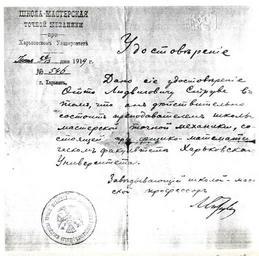 ШКОЛА-МАСТЕРСКАЯ
ТОЧНОЙ МЕХАНИКИ
при
Харьковском Университете
дня 1919 г.
№
г. Харьков.
Удостовѣрение
Дано сіе удостоверение
Отто Людвиговичу Струве в
том, что он действительно
состоит преподавателем школы
мастерской точной механики, со-
стоящей при физико-математи-
ческом факультете Харьковского
Университета.
Завѣдывающий школой-мас-
ской профессор